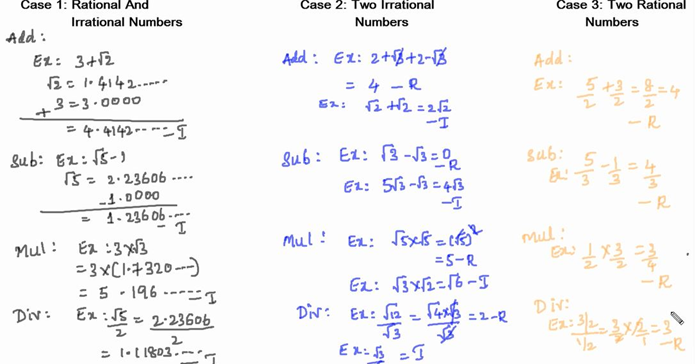 Case 1: Rational And
Irrational Numbers
Add:
Ex: 3+√2
√2 = 1.4142.....
+ 3 = 3.0000
= 4.4142----- I
Sub: Ex: √5-1
√5 = 2.23606....
-1.0000
= 1.23606---- I
Mul: Ex: 3×√3
= 3×(1.7320---)
= 5.196----- I
Div: Ex: √5/2 = 2.23606/2
= 1.11803.... I
Case 2: Two Irrational
Numbers
Add: Ex: 2+√3+2-√3
= 4 - R
Ex: √2+√2=2√2
- I
Sub: Ex: √3-√3=0
- R
Ex: 5√3-√3=4√3
- I
Mul: Ex: √5×√5=(√5)²
= 5-R
Ex: √3×√2=√6-I
Div: Ex: √12/√3 = √4×√3/√3 = 2-R
Ex: √3 = I
Case 3: Two Rational
Numbers
Add:
Ex: 5/2 + 3/2 = 8/2 = 4
- R
Sub:
Ex: 5/3 - 1/3 = 4/3
- R
Mul:
Ex: 1/2 × 3/2 = 3/4
- R
Div:
Ex: 3/2 / 1/2 = 3/2 × 2/1 = 3
-R